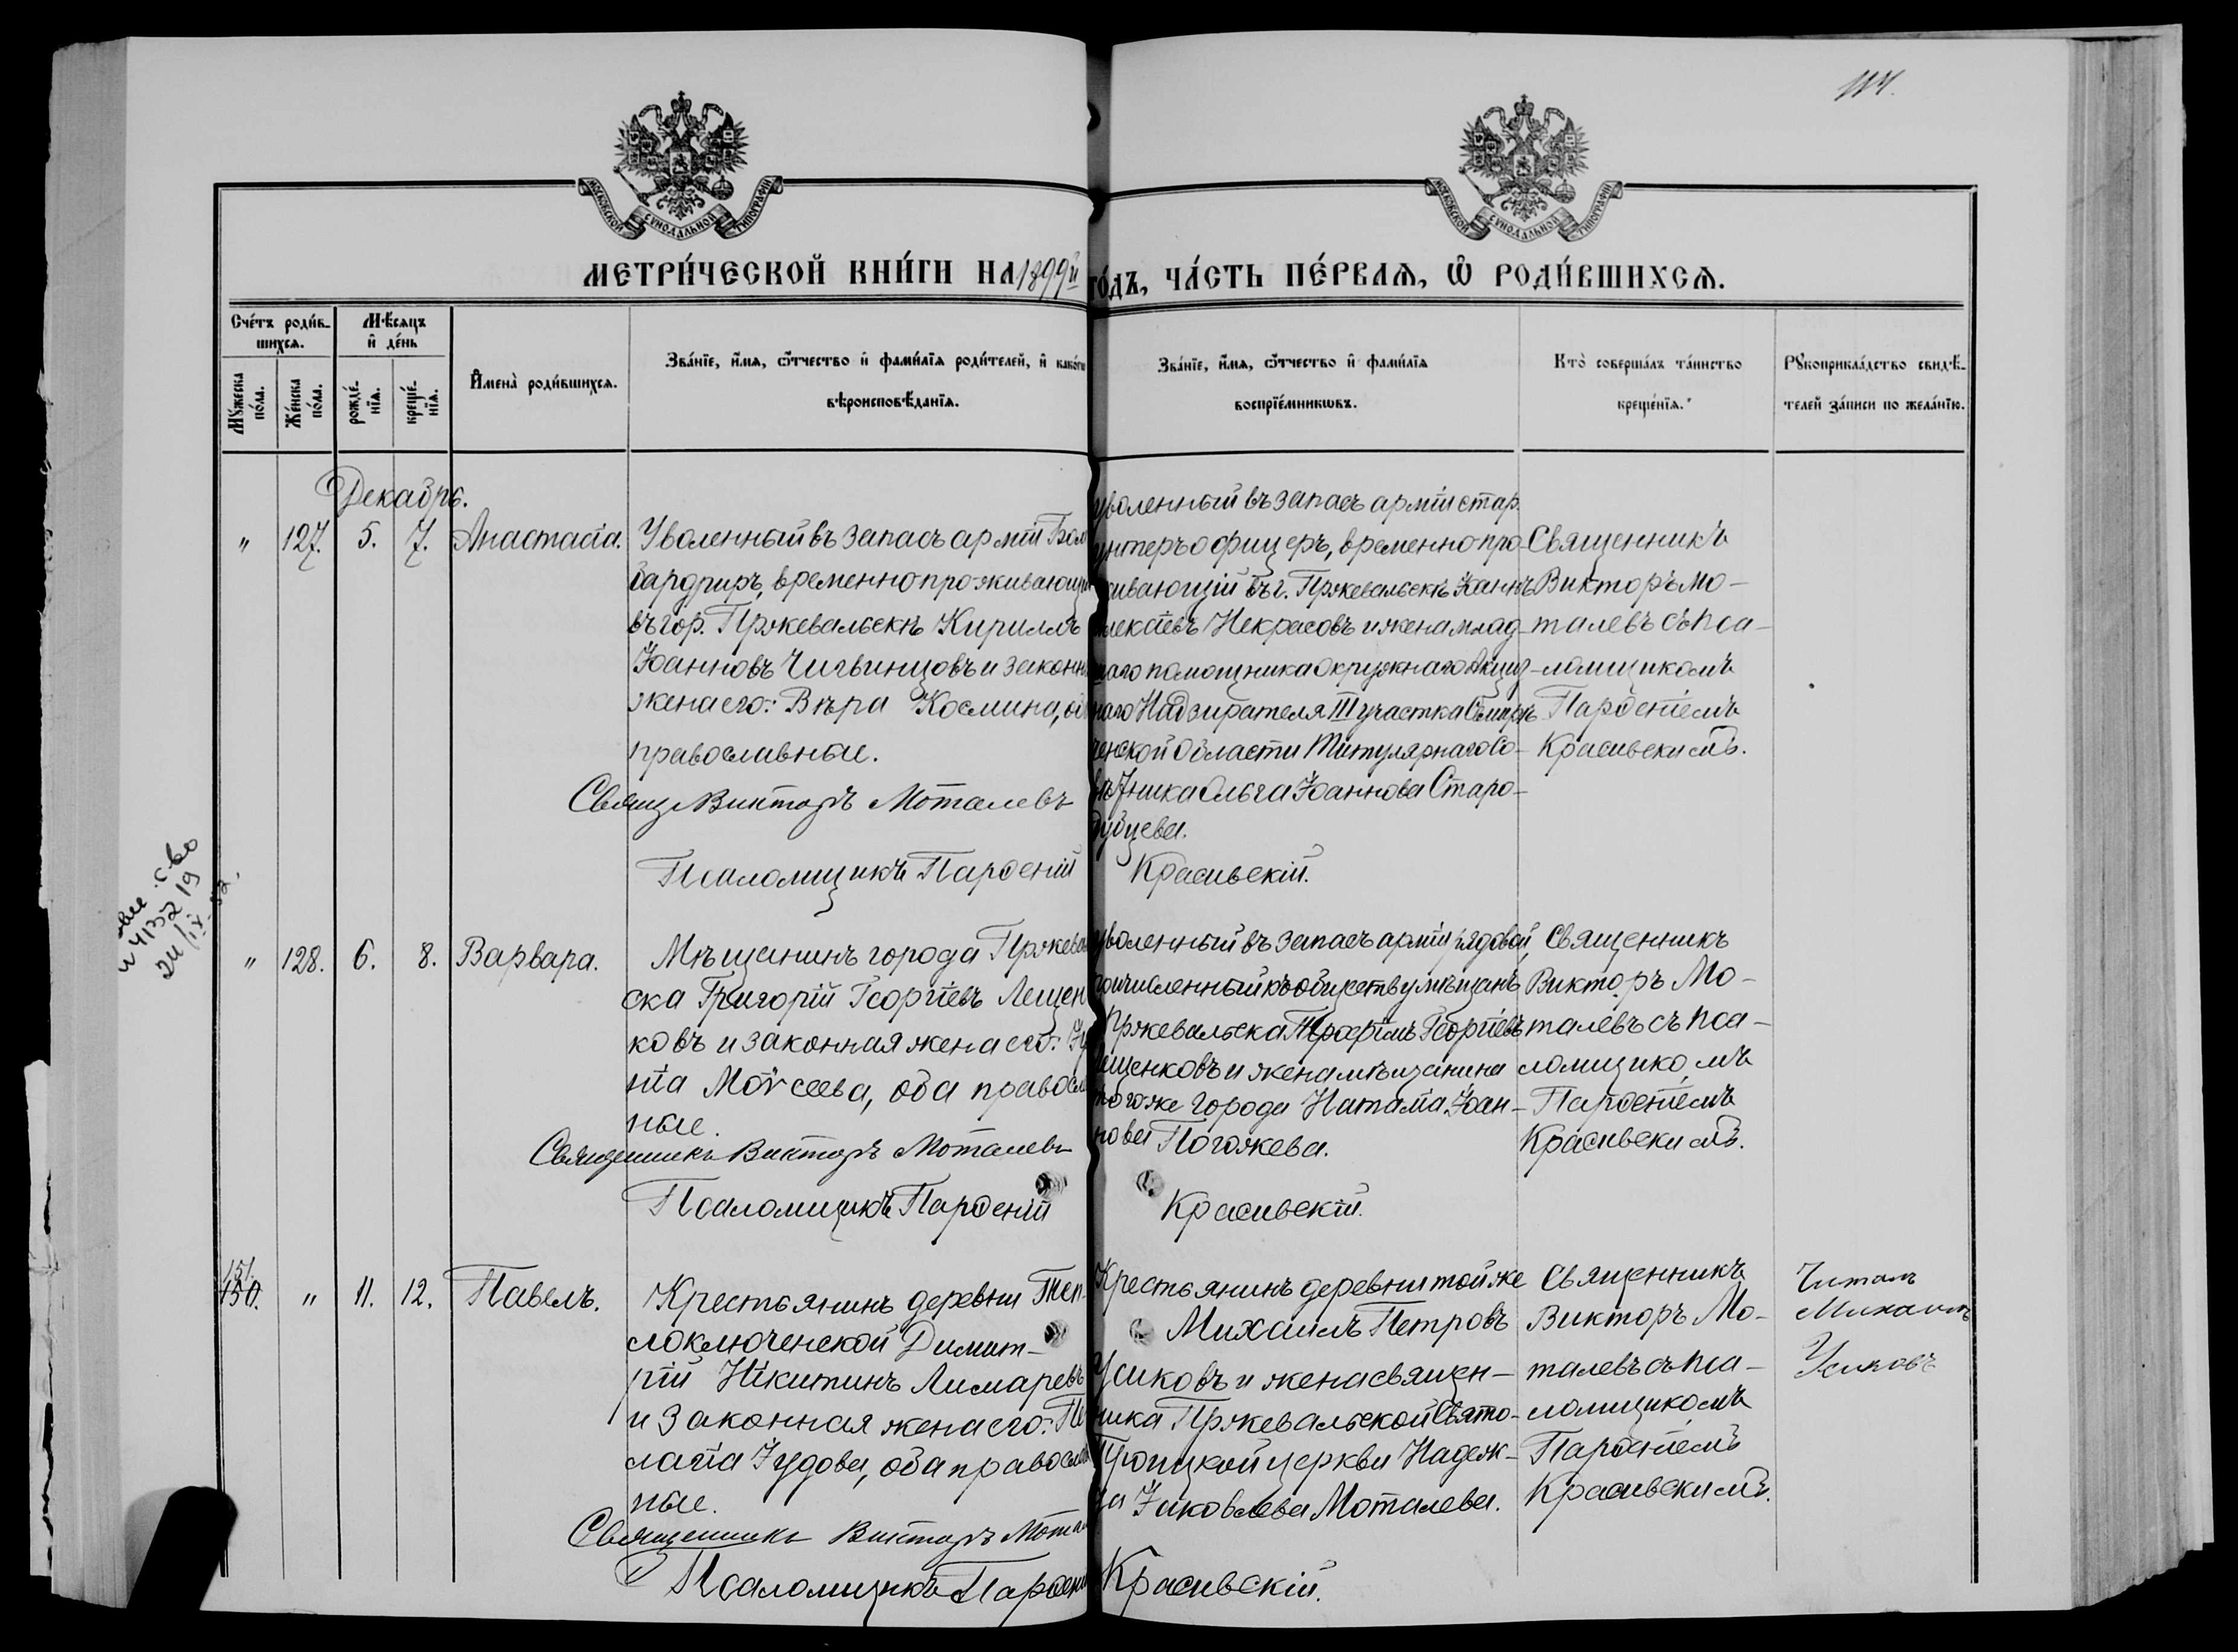 114.
МОСКОВСКОЙ СѴНОДАЛЬНОЙ ТИПОГРАФІИ
МОСКОВСКОЙ СѴНОДАЛЬНОЙ ТИПОГРАФІИ
МЕТРИ́ЧЕСКОЙ КНИ́ГИ НА 1899й ГО́ДЪ, ЧА́СТЬ ПЕ́РВАѦ, Ѡ РОДИ́ВШИХСѦ.
Сче́тъ роди́в-
шихсѧ.
Мꙋжеска по́ла.
Же́нска по́ла.
Мѣ́сѧцъ
и҆ де́нь
рожде́-
нїѧ.
креще́-
нїѧ.
И҆мена̀ роди́вшихсѧ.
Зва́нїе, и҆́мѧ, ѻ҆́тчество и҆ фами́лїѧ роди́телей, и҆ како́гѡ
вѣроисповѣ́данїѧ.
Зва́нїе, и҆́мѧ, ѻ҆́тчество и҆ фами́лїѧ
воспрїе́мникѡвъ.
Кто̀ соверша́лъ та́инство
креще́нїѧ.
Рꙋкоприкла́дство свидѣ́-
телей за́писи по жела́нїю.
Декабрь.
" 127. 5. 7. Анастасіа.
Уволенный въ запасъ арміи Бом
бардиръ, временно проживающій
въ гор. Пржевальскѣ Кириллъ
Іоанновъ Чигвинцовъ и законная
жена его: Вѣра Космина, оба
православные.
Свящ. Викторъ Моталевъ
Псаломщикъ Парѳеній
уволенный въ запасъ арміи стар.
унтеръ офицеръ, временно про-
живающій въ г. Пржевальскѣ Іоаннъ
Алексіевъ Некрасовъ и жена млад-
шаго помощника окружнаго Акциз-
наго Надзирателя III участка Семирѣ-
ченской области Титулярнаго Со-
вѣтника Ольга Іоаннова Старо-
дубцева.
Красивскій.
Священникъ
Викторъ Мо-
талевъ съ пса-
ломщикомъ
Парѳеніемъ
Красивскимъ.
" 128. 6. 8. Варвара.
Мѣщанинъ города Пржеваль
ска Григорій Георгіевъ Лещен
ковъ и законная жена его:
нія Моѵсеева, оба православ
ные.
Священникъ Викторъ Моталевъ
Псаломщикъ Парѳеній
Уволенный въ запасъ арміи рядовой,
причисленный къ обществу мѣщанъ
Пржевальска Трофимъ Георгіевъ
Лещенковъ и жена мѣщанина
того же города Наталія Іоан-
нова Погожева.
Красивскій.
Священникъ
Викторъ Мо-
талевъ съ пса-
ломщикомъ
Парѳеніемъ
Красивскимъ.
24/IX
151.
150. " 11. 12. Павелъ.
Крестьянинъ деревни Теп-
лоключенской Димит-
рій Нікитинъ Лимаревъ
и законная жена его: Пе
лагіа Іудова, оба православ
ные.
Священникъ Викторъ Мотал
Псаломщикъ Парѳені
Крестьянинъ деревни той же
Михаилъ Петровъ
Усиковъ и жена священ-
ника Пржевальской Свято-
Троицкой церкви Надеж-
да Іаковлева Моталева.
Красивскій.
Священникъ
Викторъ Мо-
талевъ съ пса-
ломщикомъ
Парѳеніемъ
Красивскимъ.
Читалъ
Михаилъ
Усиковъ